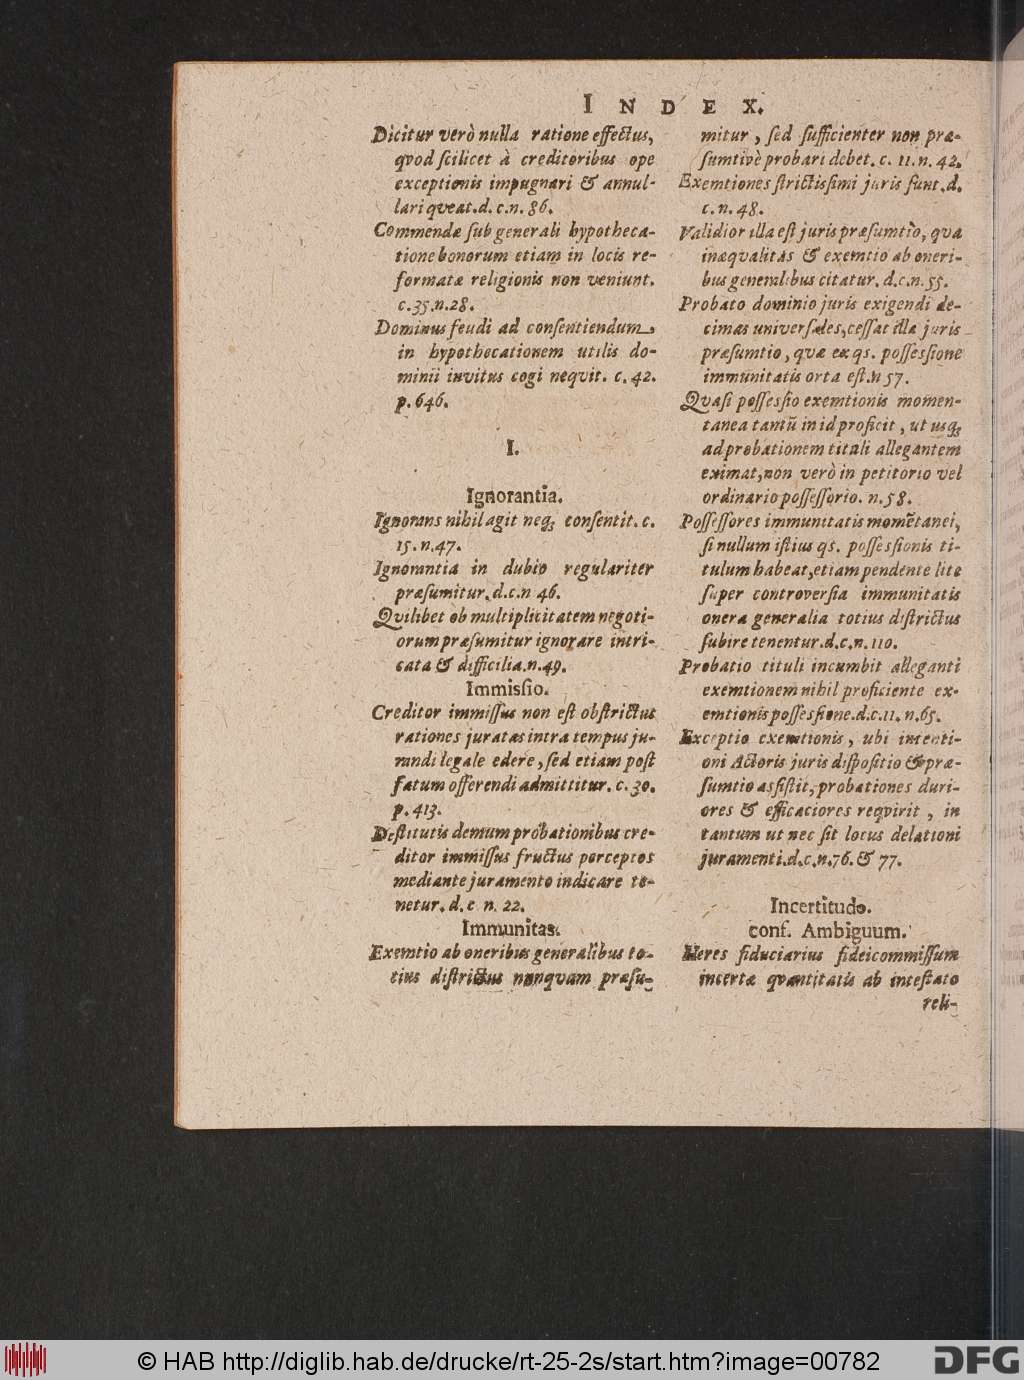 INDEX.
Dicitur verò nulla ratione effectus,
qvod scilicet à creditoribus ope
exceptionis impugnari & annul-
lari qveat.d.c.n. 86.
Commendæ sub generali hypotheca-
tione bonorum etiam in locis re-
formatæ religionis non veniunt.
c.35.n.28.
Dominus feudi ad consentiendum,
in hypothecationem utilis do-
minii invitus cogi neqvit. c. 42.
p.646.
I.
Ignorantia.
Ignorans nihil agit neqꝫ consentit. c.
15.n.47.
Ignorantia in dubio regulariter
præsumitur.d.c.n 46.
Qvilibet ob multiplicitatem negoti-
orum præsumitur ignorare intri-
cata & difficilia.n.49.
Immissio.
Creditor immissus non est obstrictus
rationes juratas intra tempus ju-
randi legale edere, sed etiam post
fatum offerendi admittitur. c.30.
p.413.
Destitutis demum probationibus cre-
ditor immissus fructus perceptos
mediante juramento indicare te-
netur.d.c n. 22.
Immunitas.
Exemtio ab oneribus generalibus to-
tius districtus nunqvam præsu-
mitur, sed sufficienter non præ-
sumtivè probari debet. c. 11.n. 42.
Exemtiones strictissimi juris sunt.d.
c.n.48.
Validior illa est juris præsumtio, qva
inæqvalitas & exemtio ab oneri-
bus generalibus citatur. d.c.n.55.
Probato dominio juris exigendi de-
cimas universales, cessat illa juris
præsumtio, qvæ ex qs. possessione
immunitatis orta est.n 57.
Qvasi possessio exemtionis momen-
tanea tantū in id proficit, ut usqꝫ
ad probationem tituli allegantem
eximat, non verò in petitorio vel
ordinario possessorio. n.58.
Possessores immunitatis momētanei,
si nullum istius qs. possessionis ti-
tulum habeat, etiam pendente lite
super controversia immunitatis
onera generalia totius districtus
subire tenentur.d.c.n.110.
Probatio tituli incumbit alleganti
exemtionem nihil proficiente ex-
emtionis possessione.d.c.11.n.65.
Exceptio exemtionis, ubi intenti-
oni Actoris juris dispositio & præ-
sumtio assistit, probationes duri-
ores & efficaciores reqvirit, in
tantum ut nec sit locus delationi
juramenti.d.c.n.76.& 77.
Incertitudo.
conf. Ambiguum.
Heres fiduciarius fideicommissum
incertæ qvantitatis ab intestato
reli-
© HAB http://diglib.hab.de/drucke/rt-25-2s/start.htm?image=00782
DFG